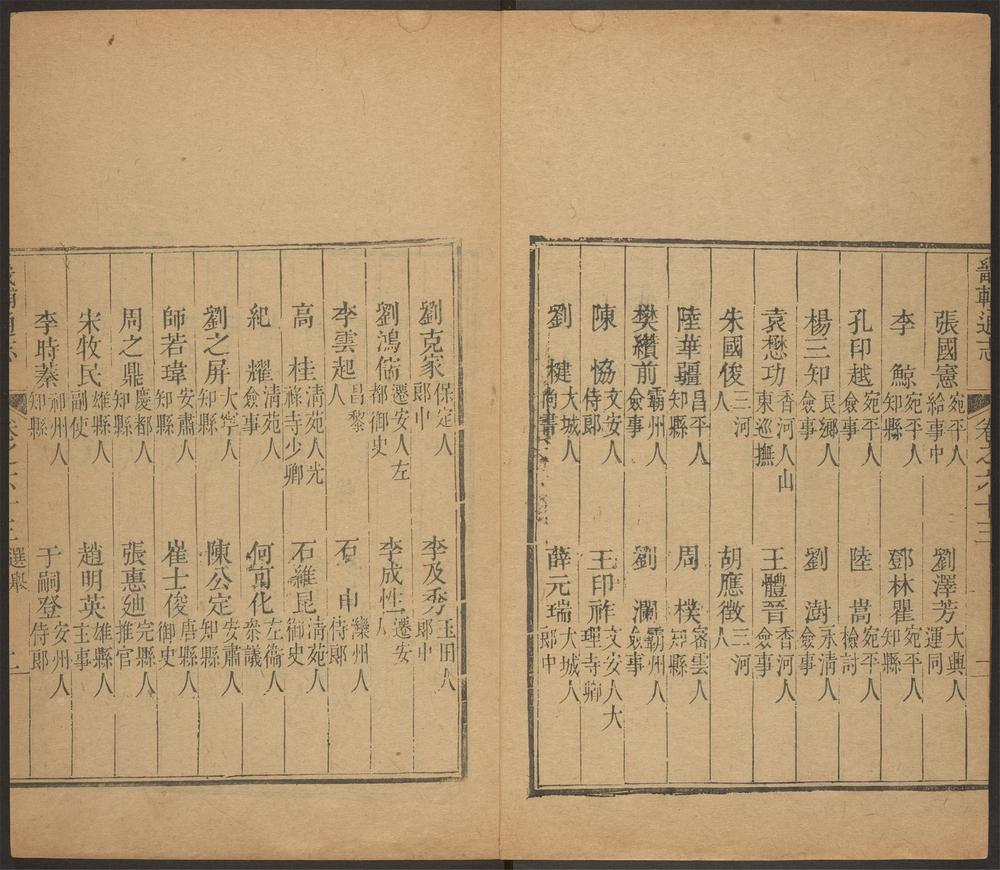 畿輔通志 卷之六十三
張國憲 宛平人給事中 劉澤芳 大興人運同
李鯨 宛平人知縣 鄧林瞿 宛平人知縣
孔印越 宛平人僉事 陸嵩 宛平人檢討
楊三知 良鄉人僉事 劉澍 永清人僉事
袁懋功 香河人山東巡撫 王體晉 香河人僉事
朱國俊 三河人 胡應徵 三河人
陸華疆 昌平人知縣 周樸 密雲人知縣
樊纘前 霸州人僉事 劉瀾 霸州人僉事
陳協 文安人侍郎 王印祚 文安人大理寺卿
劉楗 大城人尚書 薛元瑞 大城人郎中
劉克家 保定人郎中 李及秀 玉田人郎中
劉鴻儒 遷安人左都御史 李成性 遷安人
李雲起 昌黎人 石申 灤州人侍郎
高桂 清苑人光祿寺少卿 石維昆 清苑人御史
紀耀 清苑人僉事 何可化 左衞人叅議
劉之屏 大寧人知縣 陳公定 安肅人知縣
師若瑋 安肅人知縣 崔士俊 唐縣人御史
周之鼎 慶都人知縣 張惠迪 完縣人推官
宋牧民 雄縣人副使 趙明英 雄縣人主事
李時蓁 祁州人知縣 于嗣登 安州人侍郎
畿輔通志 卷之六十三 選舉 二